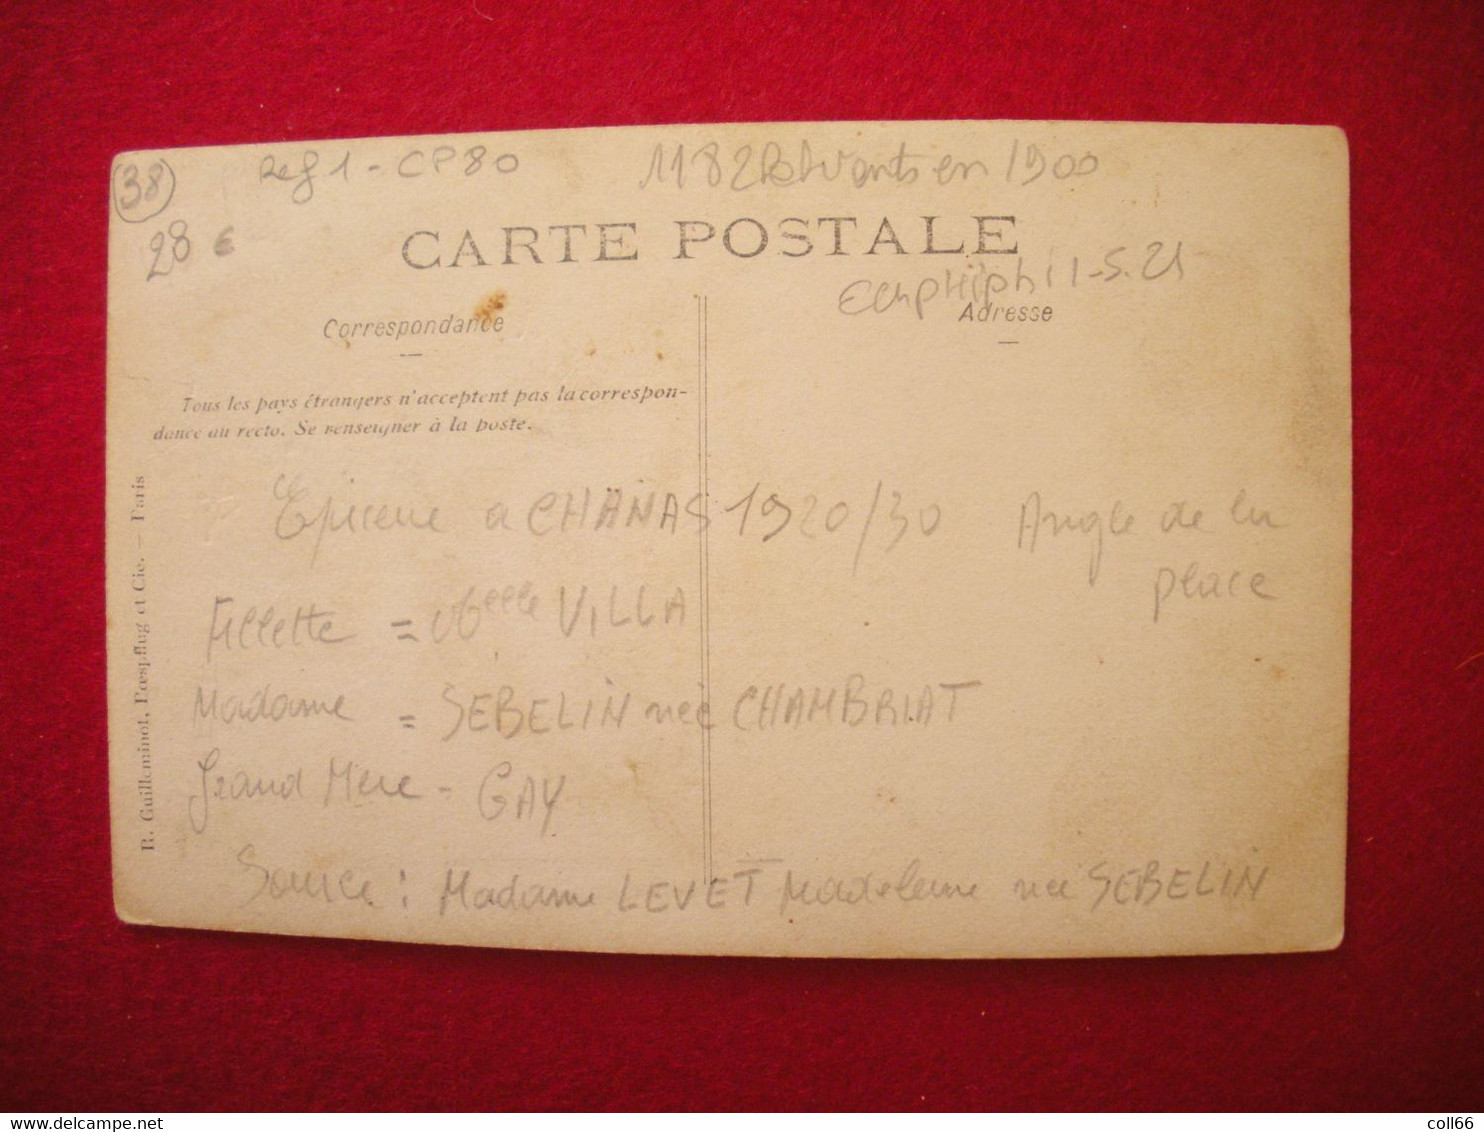 (38) Ref 1 - CP80 1182 en 1900
28 €
CARTE POSTALE
1-5.21
Correspondance
Adresse
Tous les pays étrangers n'acceptent pas la correspon-
dance au recto. Se renseigner à la poste.
R. Guilleminot, Bœspflug et Cie. — Paris
Epicerie a CHANAS 1920/30 Angle de la
place
Fillette = Melle VILLA
Madame = SEBELIN née CHAMBRIAT
Grand Mere - GAY
Source : Madame LEVET Madeleine née SEBELIN
delcampe.net
coll66